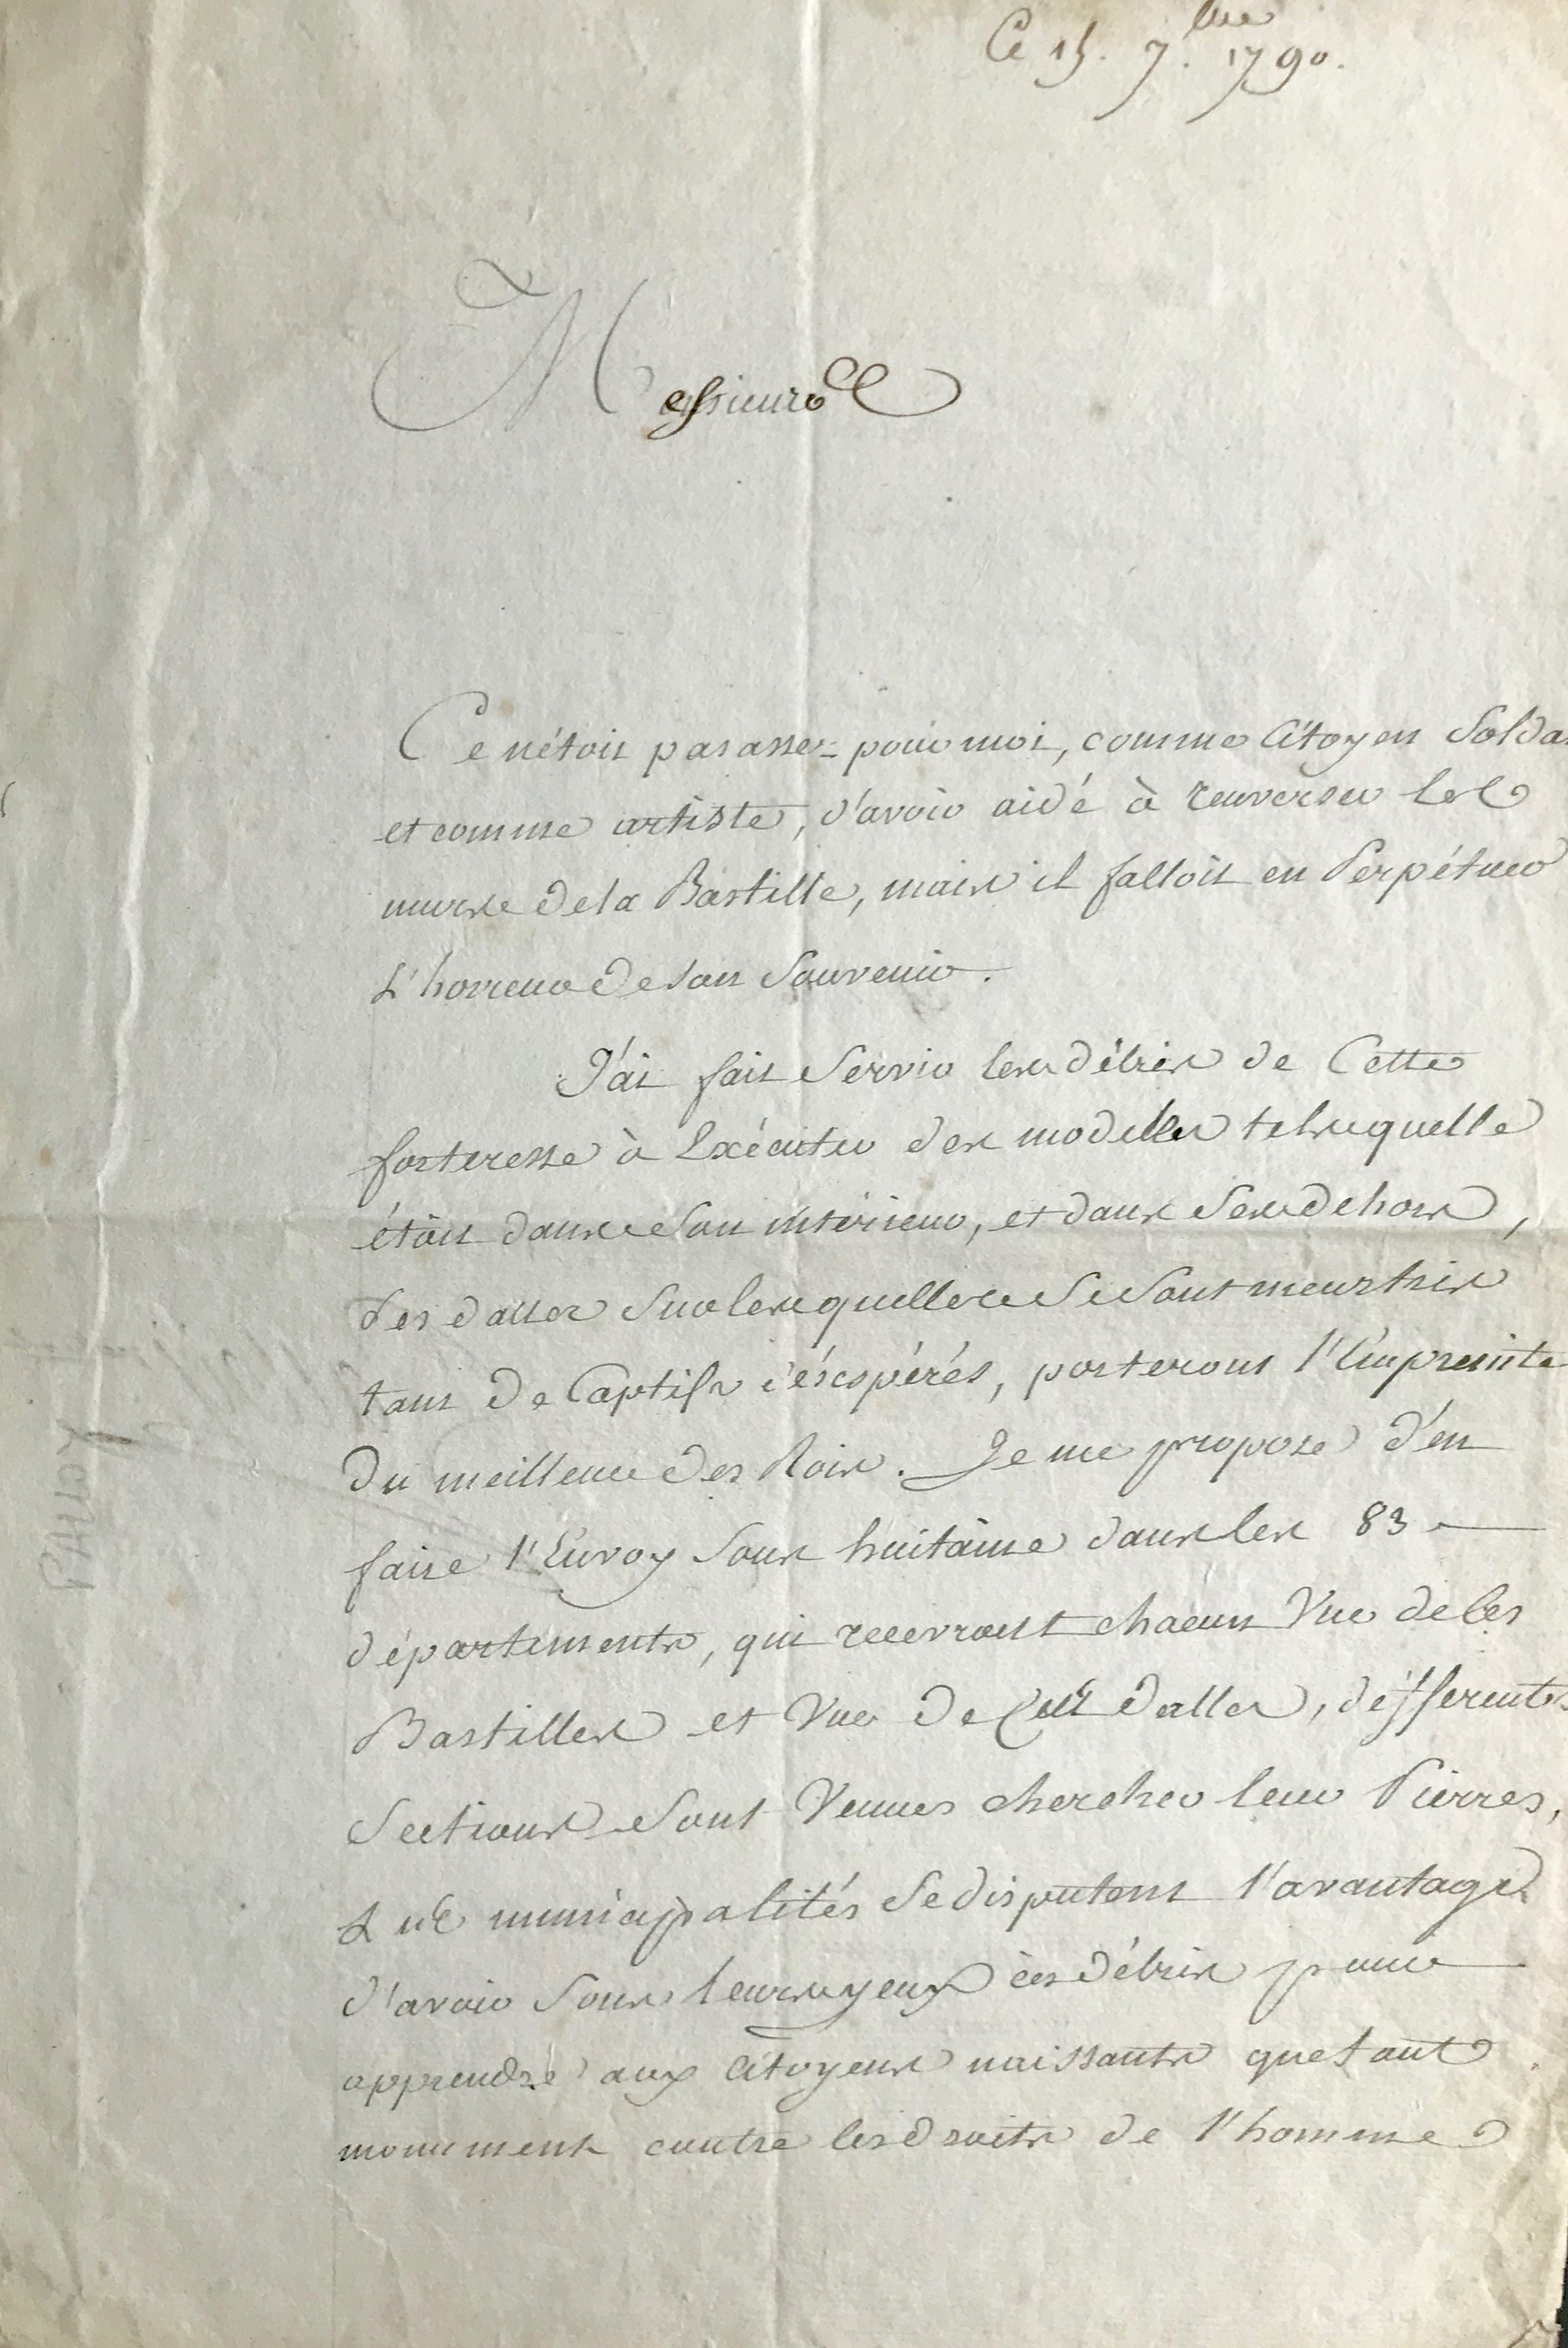 Ce 15. 7.bre 1790.
Messieurs
Ce nétoit pas assez pour moi, comme Citoyen Solda
et comme artiste, d'avoir aidé à renverser les
murs de la Bastille, mais il falloit en Perpétuer
L'horreur de son Souvenir.
J'ai fait Servir les débris de Cette
forteresse à Exécuter des modelles tels quelle
étoit dans son intérieur, et dans Ses dehors,
des dalles Sur lesquelles Se Sont meurtris
tant de Captifs déséspérés, porteront l'Empreinte
du meilleur des Rois. Je me propose d'en
faire l'Envoy Sous huitaine dans les 83
départements, qui recevront chacun Une de Ces
Bastilles et Une de Ces Dalles, différentes
Sections Sont Venues chercher leur Pierres,
Les municipalités Se disputent l'avantage
d'avoir Sous leurs yeux ces débris pour
apprendre aux Citoyens naissants que tant
monument contre les droits de l'homme